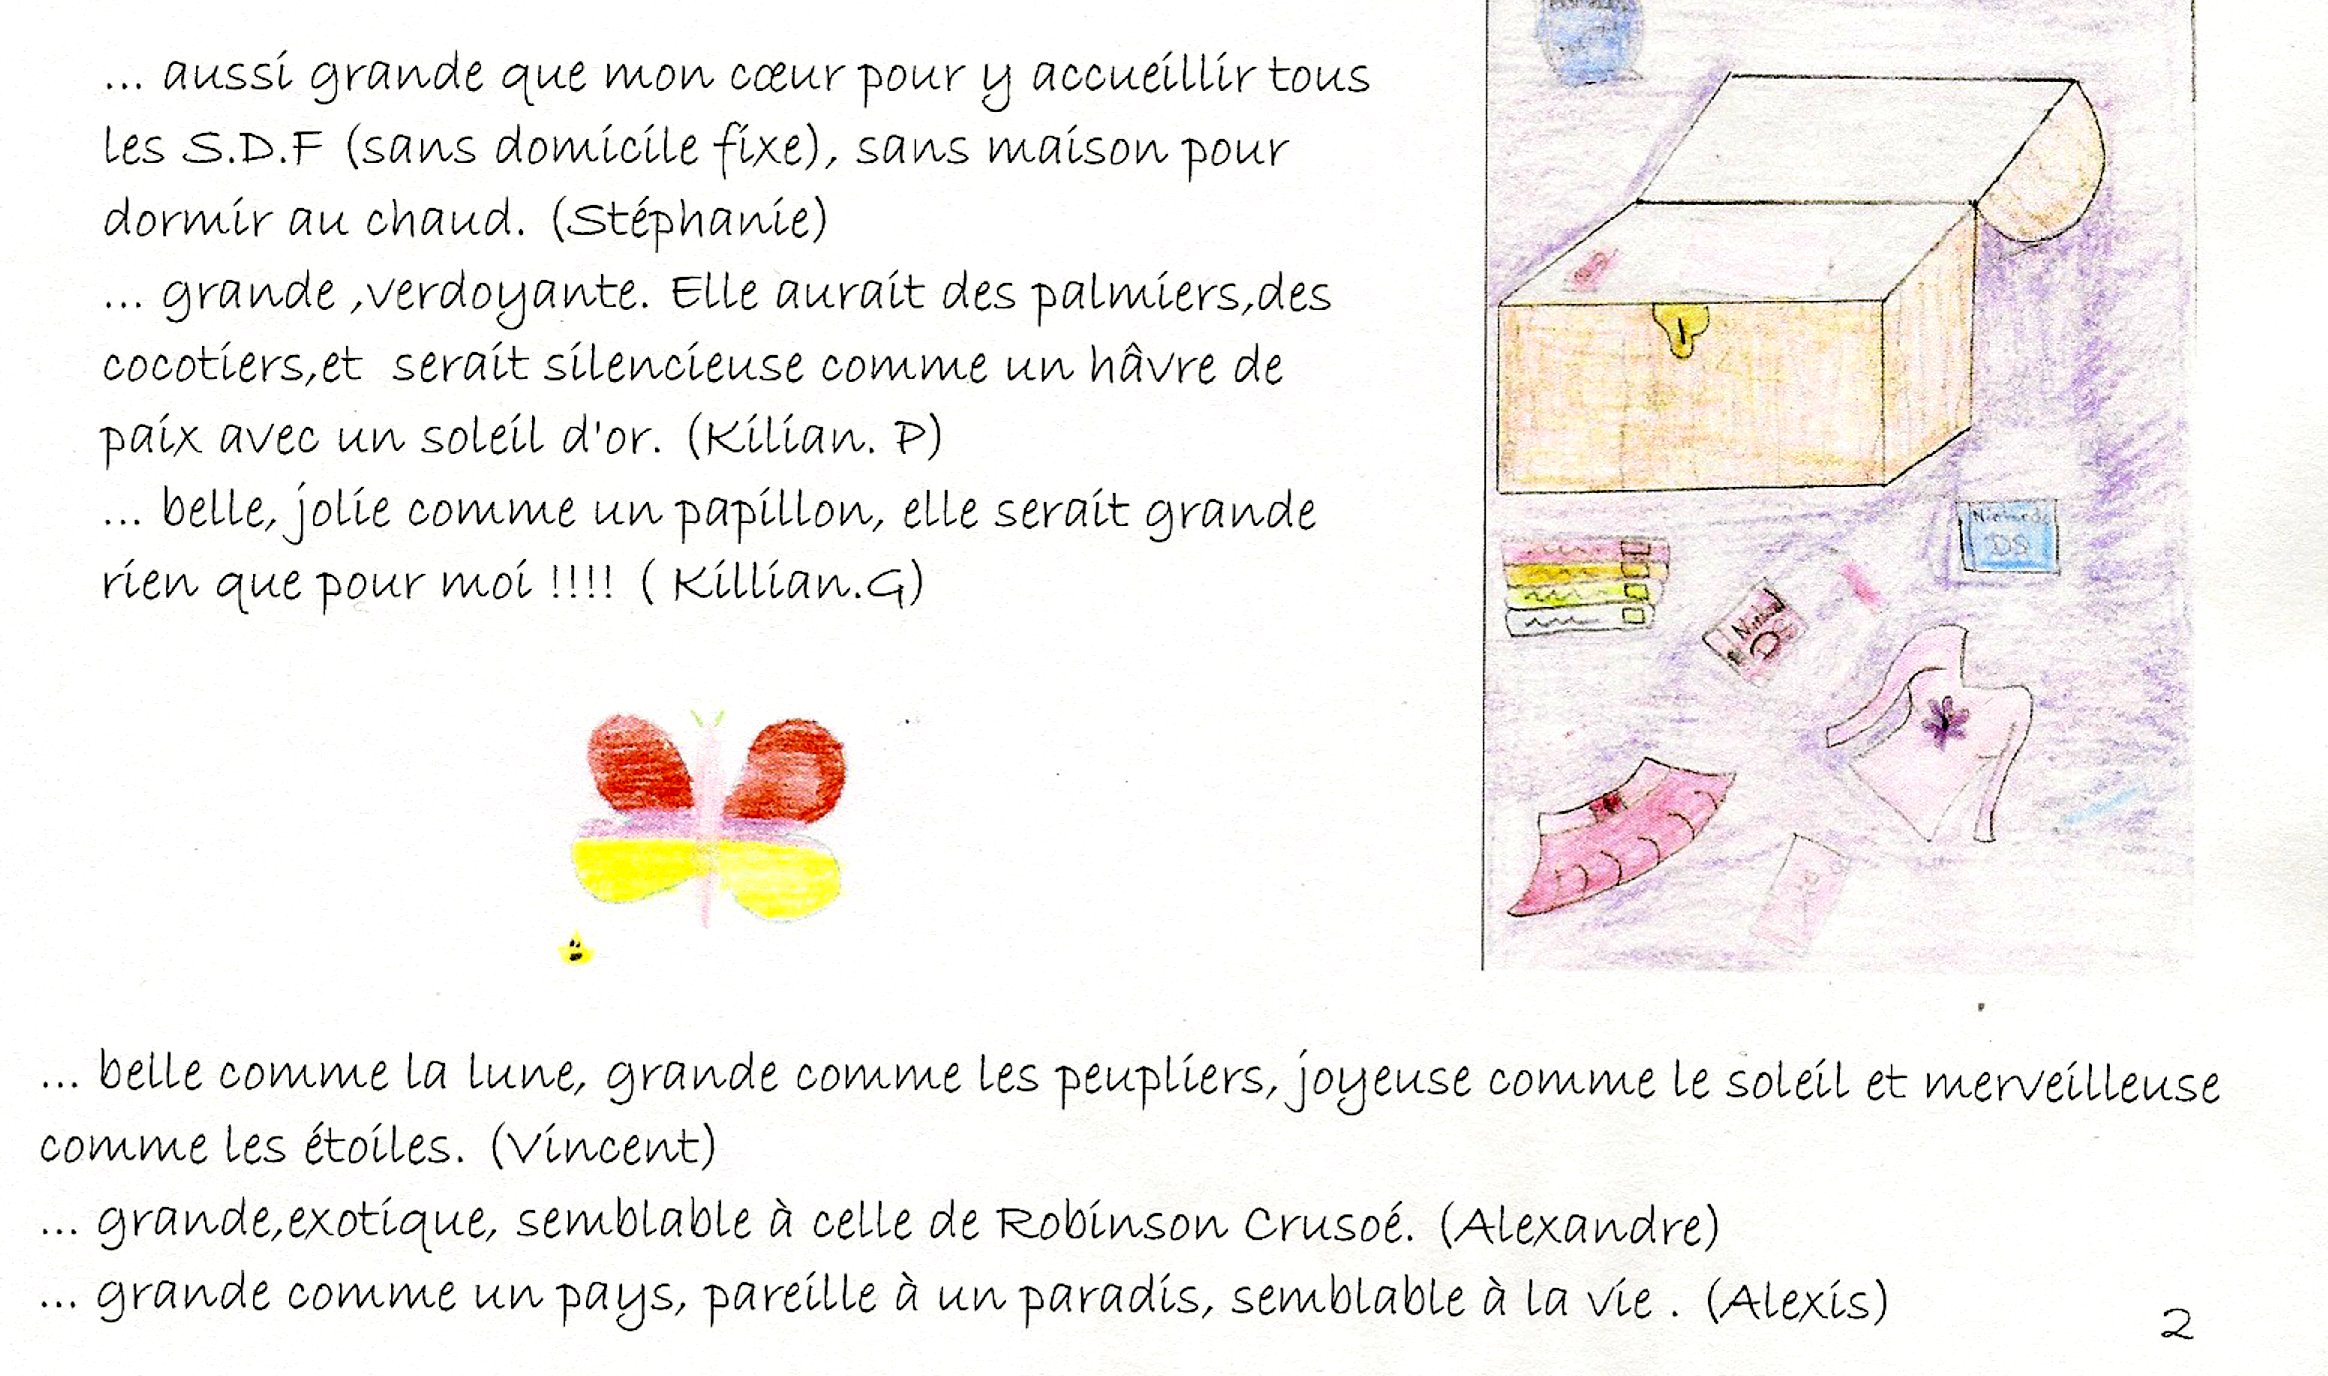 ... aussi grande que mon cœur pour y accueillir tous
les S.D.F (sans domicile fixe), sans maison pour
dormir au chaud. (Stéphanie)
... grande ,verdoyante. Elle aurait des palmiers,des
cocotiers,et  serait silencieuse comme un hâvre de
paix avec un soleil d'or. (Kilian. P)
... belle, jolie comme un papillon, elle serait grande
rien que pour moi !!!! ( Killian.G)
DS
... belle comme la lune, grande comme les peupliers, joyeuse comme le soleil et merveilleuse
comme les étoiles. (Vincent)
... grande,exotique, semblable à celle de Robinson Crusoé. (Alexandre)
... grande comme un pays, pareille à un paradis, semblable à la vie . (Alexis)
2